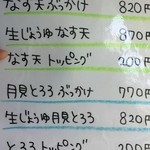 なす天ぶっかけ 820円
生じょうゆなす天 870円
なす天トッピング 200円
月見とろろぶっかけ 770円
生じょうゆ月見とろろ 820
とろろトッピング 200円